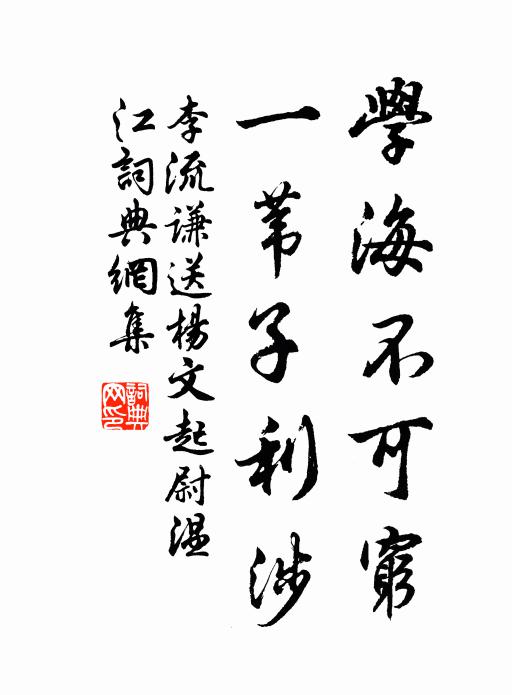 學海不可窮
一苇子利涉
李流謙送楊文起尉温
江詞典網集
詞典網印